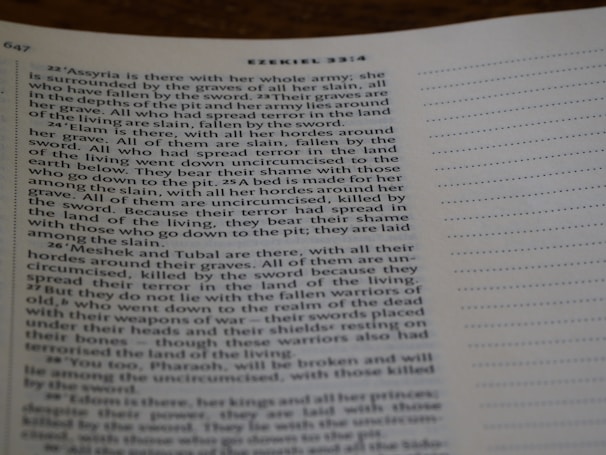 647
EZEKIEL 33:4
22 'Assyria is there with her whole army; she
is surrounded by the graves of all her slain, all
who have fallen by the sword. 23 Their graves are
in the depths of the pit and her army lies around
her grave. All who had spread terror in the land
of the living are slain, fallen by the sword.
24 'Elam is there, with all her hordes around
her grave. All of them are slain, fallen by the
sword. All who had spread terror in the land
of the living went down uncircumcised to the
earth below. They bear their shame with those
who go down to the pit. 25 A bed is made for her
among the slain, with all her hordes around her
grave. All of them are uncircumcised, killed by
the sword. Because their terror had spread in
the land of the living, they bear their shame
with those who go down to the pit; they are laid
among the slain.
26 'Meshek and Tubal are there, with all their
hordes around their graves. All of them are un-
circumcised, killed by the sword because they
spread their terror in the land of the living.
27 But they do not lie with the fallen warriors of
old,b who went down to the realm of the dead
with their weapons of war – their swords placed
under their heads and their shieldsc resting on
their bones – though these warriors also had
terrorised the land of the living.
28 'You too, Pharaoh, will be broken and will
lie among the uncircumcised, with those killed
by the sword.
29 'Edom is there, her kings and all her princes;
despite their power, they are laid with those
killed by the sword. They lie with the uncircum-
cised, with those who go down to the pit.
30 'All the princes of the north and all the Sido-